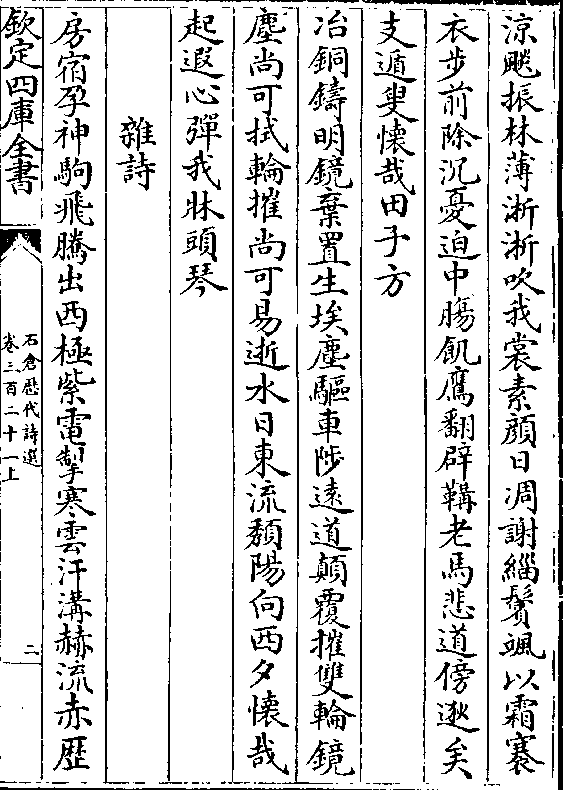 涼飈振林薄浙浙吹我裳素顔日凋謝緇鬢颯以霜褰
衣步前除沉憂迫中腸飢鷹翻辟鞲老馬悲道傍逖矣
支遁叟懐哉田子方
冶銅鑄明鏡棄置生埃塵驅車陟遠道顛覆摧雙輪鏡
塵尚可拭輪摧尚可易逝水日東流頽陽向西夕懐哉
起遐心彈我牀頭琴
雜詩
房宿孕神駒飛騰出西極紫電掣寒雲汗溝赫流赤歴
欽定四庫全書
石倉歴代詩選
卷三百二十一上
二